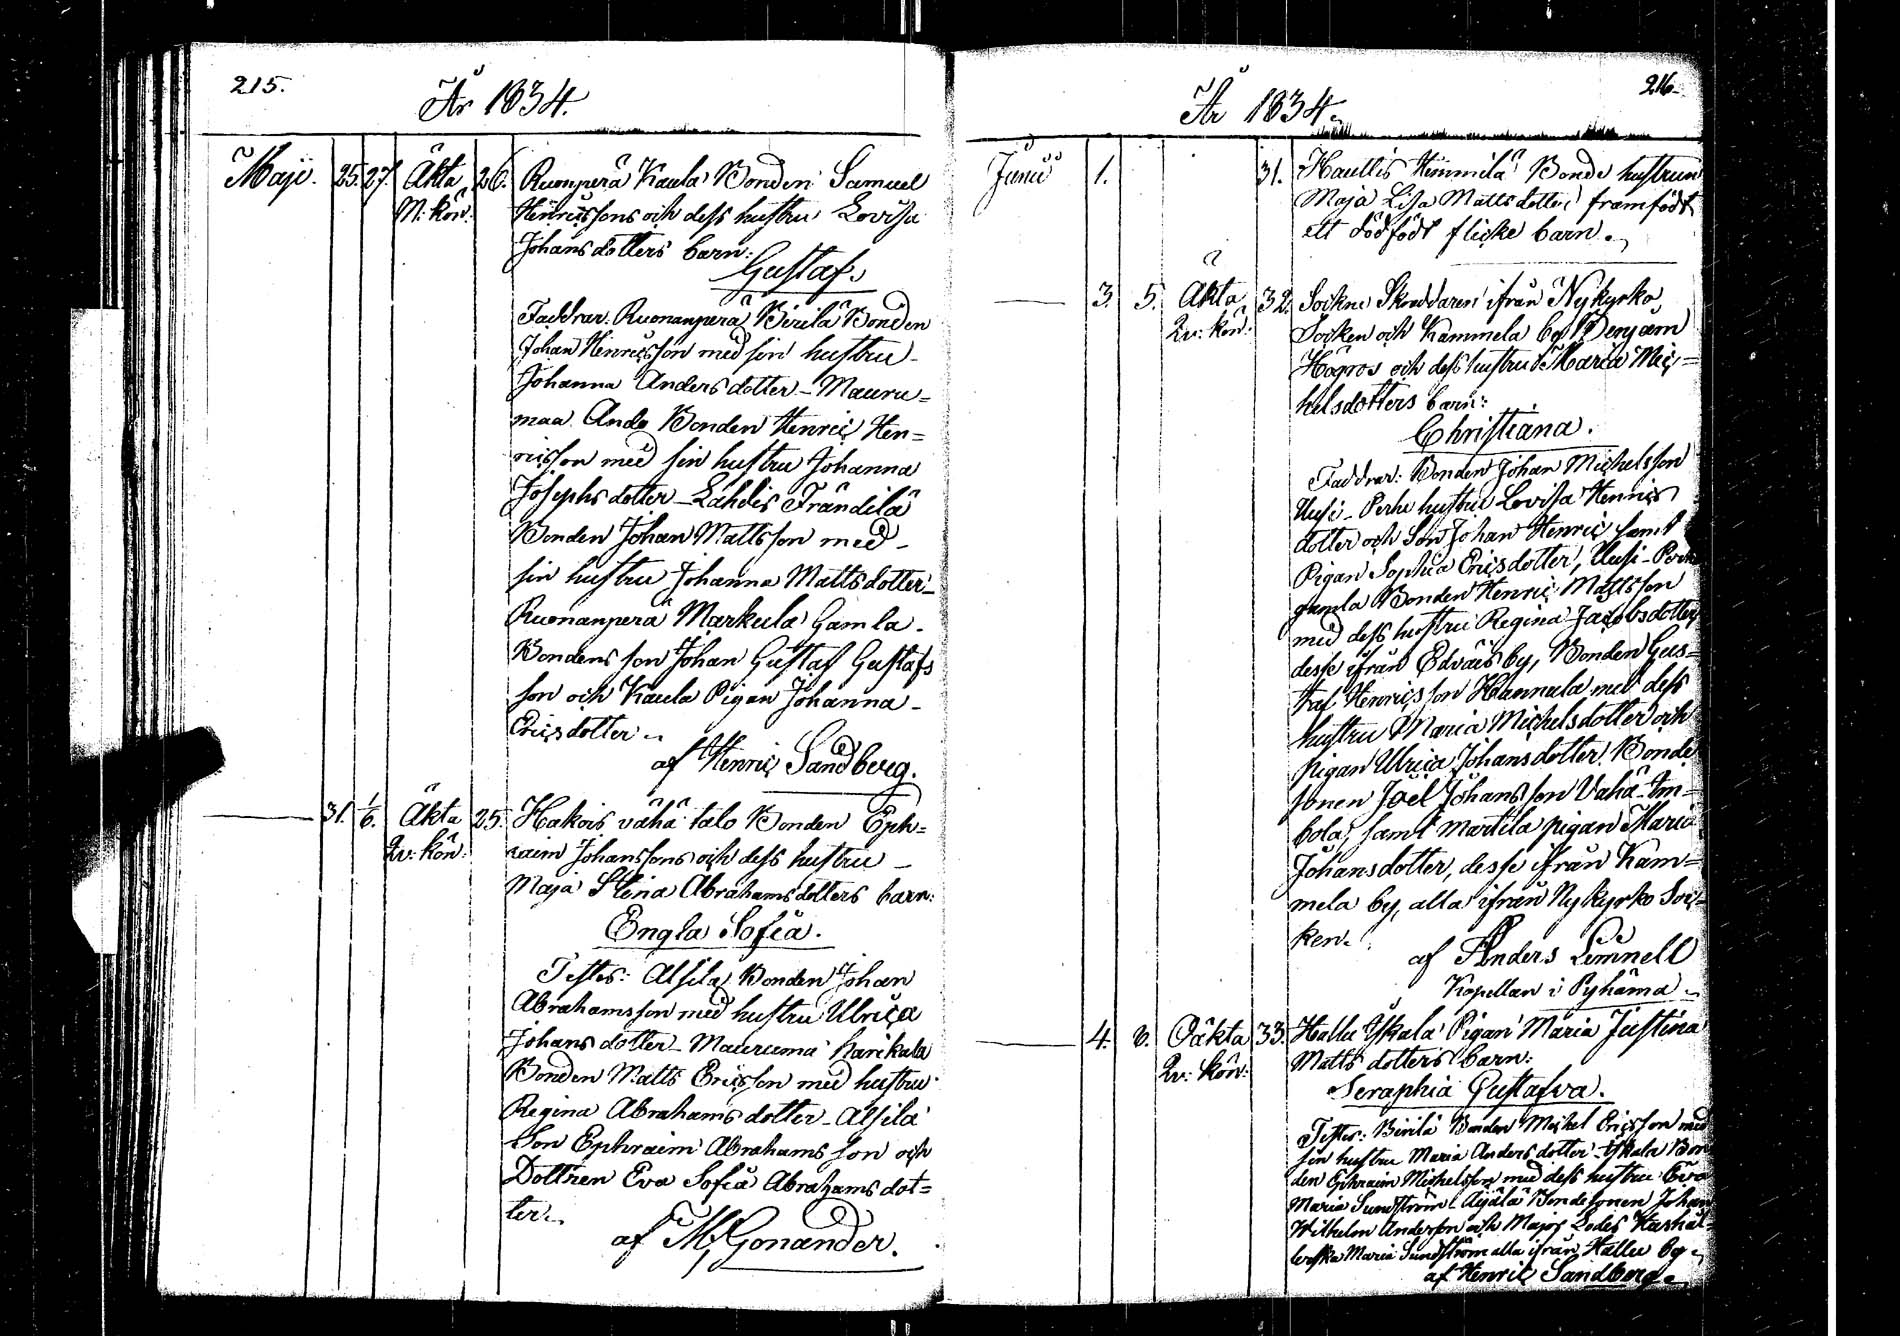 215.
År 1834.
Maji. 25. 27. Äkta 26. Ruonperä Kaula Bonden Samuel
M. kön. Henricssons och dess hustru Lovisa
Johansdotters barn:
Gustaf.
Faddrar. Ruonanperä Birilä Bonden
Johan Henricsson med sin hustru
Johanna Andersdotter - Mauru=
maa Ando Bonden Henric Hen=
ricsson med sin hustru Johanna
Josephsdotter - Lahdis Frändilä
Bonden Johan Mattsson med
sin hustru Johanna Mattsdotter -
Ruonanperä Markula Gamla
Bondens son Johan Gustaf Gustafs
son och Kaula Pigan Johanna
Ericsdotter.
af Henric Sandberg.
31. 1/6. Äkta 25. Hakois vähä talo Bonden Eph=
Qv: kön: raim Johanssons och dess hustru
Maja Stina Abrahamsdotters barn:
Engla Sofia.
Testes: Alsila Bonden Johan
Abrahamsson med hustru Ulrica
Johansdotter - Mauruma Harikala
Bonden Matts Ericsson med hustru
Regina Abrahamsdotter - Alsila
Son Ephraim Abrahamsson och
Dottren Eva Sofia Abrahamsdot=
ter.
af M. Gonander.
216.
År 1834.
Junii 1. 31. Haullis Himmilä Bonde hustrun
Maja Lisa Mattsdotter framfödt
ett dödfödt flicke barn.
3. 5. Äkta 32. Sockne Skräddaren ifrån Nykyrko
Qv: kön: Socken och Kammela by Benjam
Högros och dess hustru Maria Mic=
helsdotters barn:
Christiana.
Faddrar: Bonden Johan Michelsson
Uusi-Perhe hustru Lovisa Henrics
dotter och Son Johan Henric samt
Pigan Sophia Ericsdotter, Uusi-Perhe
gamla Bonden Henric Mattsson
med dess hustru Regina Jacobsdotter
desse ifrån Edväis by, Bonden Gus=
taf Henricsson Hannula med dess
hustru Maria Michelsdotter och
pigan Ulrica Johansdotter Bonde
sonen Joël Johansson Vähä-Im=
bola, samt Martila pigan Maria
Johansdotter, desse ifrån Kam=
mela by, alla ifrån Nykyrko Soc=
ken.
af Anders Lemnell
Kapellan i Pyhäma
4. 6. Oäkta 33. Hallu Yskala Pigan Maria Justina
Qv: kön: Mattsdotters barn:
Seraphia Gustafva.
Testes: Birilä Bonden Michel Ericsson med
sin hustru Maria Andersdotter Yskala Bon
den Ephraim Michelsson med dess hustru Eva
Maria Sundström - Äijälä Bondesonen Johan
Wilhelm Andersson och Major Lodes Hushål=
lerska Maria Sundström alla ifrån Hallu by.
af Henric Sandberg.